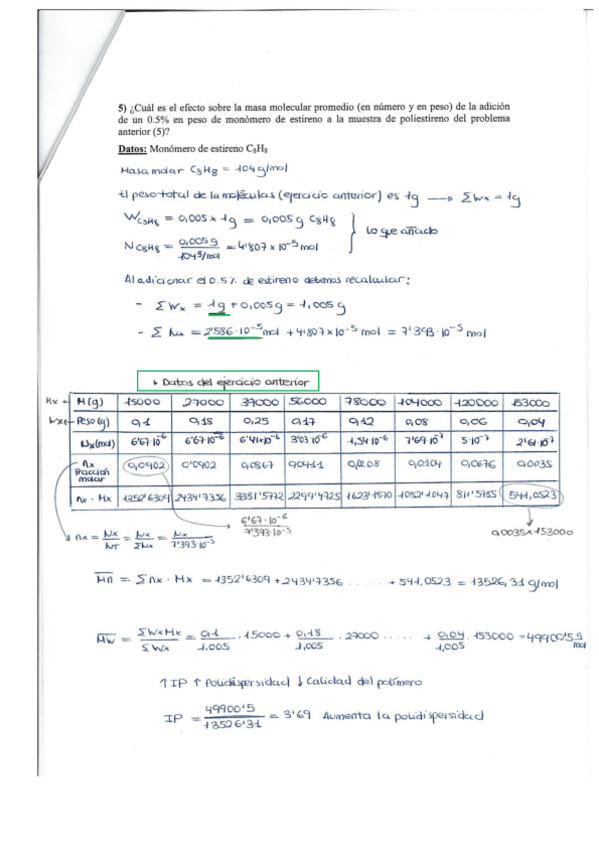 5) ¿Cuál es el efecto sobre la masa molecular promedio (en número y en peso) de la adición
de un 0.5% en peso de monómero de estireno a la muestra de poliestireno del problema
anterior (5)?
Datos: Monómero de estireno C₈H₈
Masa molar C₈H₈ = 104 g/mol
El peso total de la moléculas (ejercicio anterior) es 1g → ΣWx = 1g
W C₈H₈ = 0,005 x 1g = 0,005 g C₈H₈
N C₈H₈ = 0,005 g / 104 g/mol = 4'807 x 10⁻⁵ mol
} Lo que añado
Al adicionar el 0.5% de estireno debemos recalcular:
- ΣWx = 1g + 0,005g = 1,005 g
- ΣNx = 2'586·10⁻⁵ mol + 4'807 x 10⁻⁵ mol = 7'393·10⁻⁵ mol
↳ Datos del ejercicio anterior
Mx ← M(g) 15000 27000 39000 56000 78000 104000 120000 153000
Wx ← Peso(g) 0,1 0,18 0,25 0,17 0,12 0,08 0,06 0,04
Nx(mol) 6'67·10⁻⁶ 6'67·10⁻⁶ 6'41·10⁻⁶ 3'03·10⁻⁶ 1,54·10⁻⁶ 7'69·10⁻⁷ 5·10⁻⁷ 2'61·10⁻⁷
nx Fracción molar 0,0902 0'0902 0,0867 0,0411 0,0208 0,0104 0,0676 0,0035
nx · Mx 1352'6309 2434'7356 3381'5772 2299'4725 1623'1570 1082'1047 811'5785 541,0523
nx = Nx/NT = Nx/ΣNx = Nx/7'393·10⁻⁵
6'67·10⁻⁶ / 7'393·10⁻⁵
0,0035 x 153000
M̅n̅ = Σ nx · Mx = 1352'6309 + 2434'7356 ..... + 541,0523 = 13526,31 g/mol
M̅w̅ = ΣWxMx / ΣWx = 0,1/1,005 · 15000 + 0,18/1,005 · 27000 ..... + 0,04/1,005 · 153000 = 49900'5 g/mol
↑ IP ↑ Polidispersidad ↓ Calidad del polímero
IP = 49900'5 / 13526'31 = 3'69 Aumenta la polidispersidad